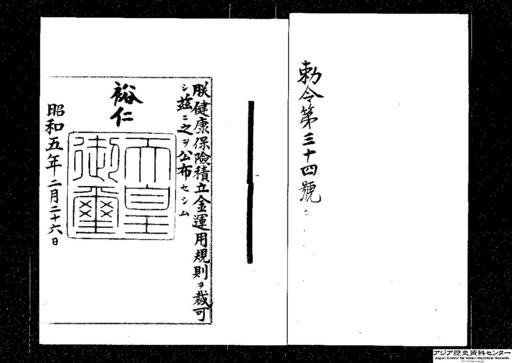 勅令第三十四號
朕健康保險積立金運用規則ヲ裁可
シ茲ニ之ヲ公布セシム
裕仁
天皇
御璽
昭和五年二月二十六日
アジア歴史資料センター
Japan Center for Asian Historical Records